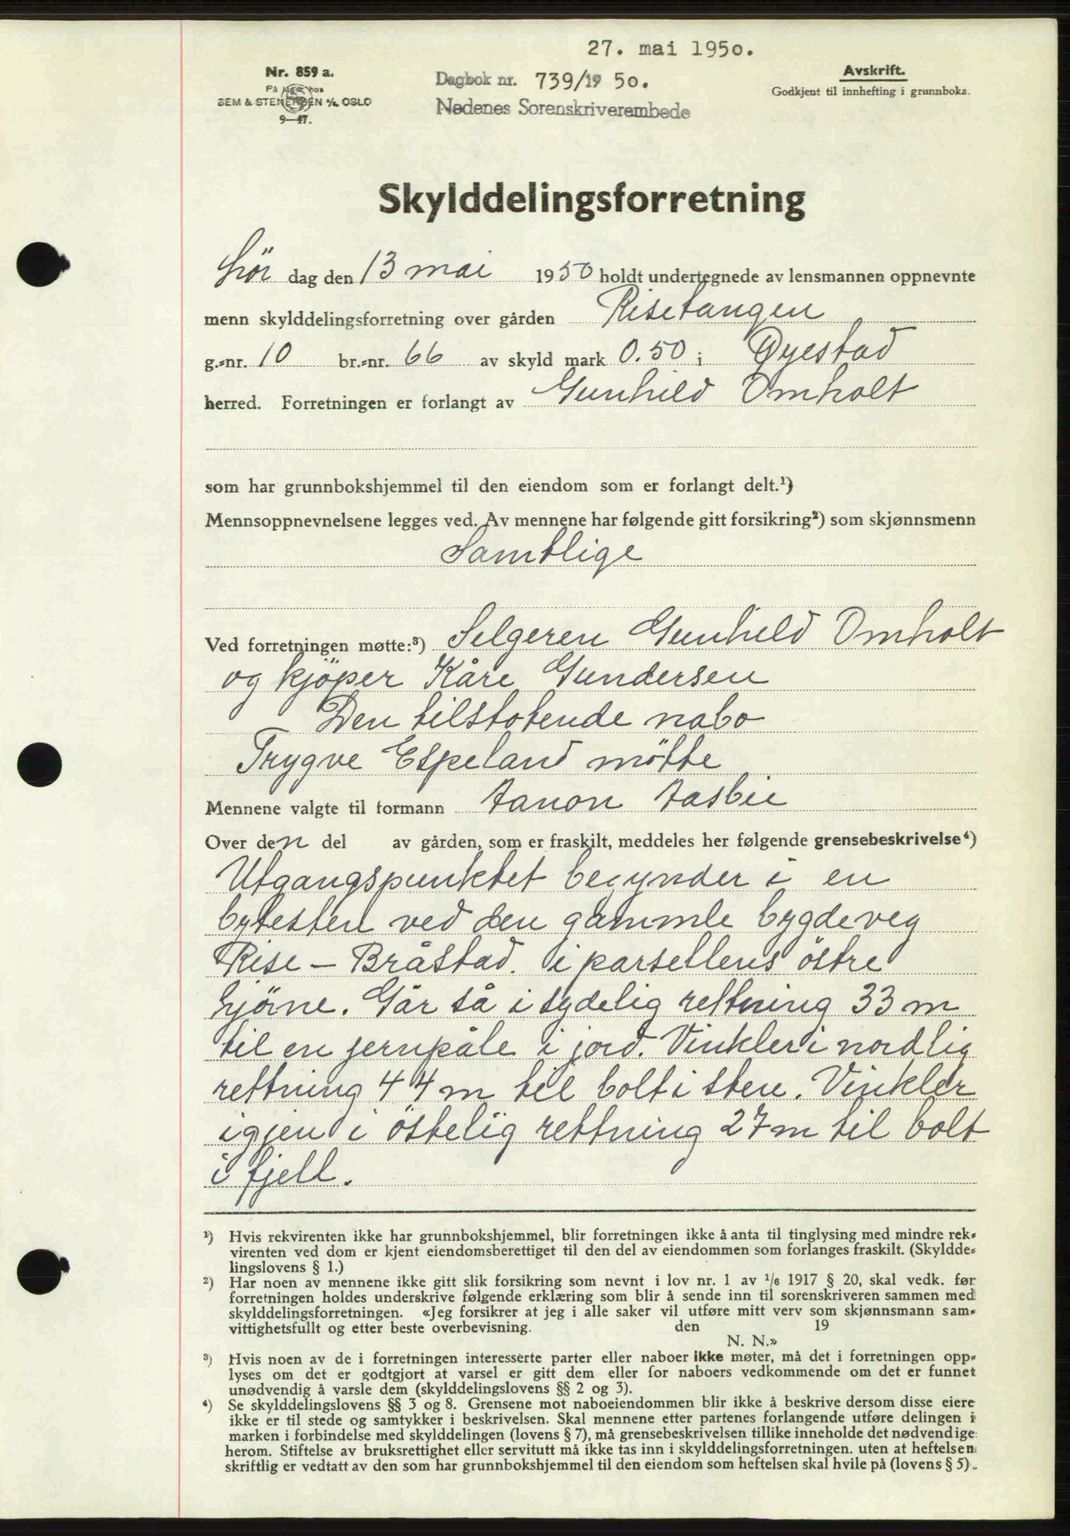 27. mai 1950.
Nr. 859 a.
På lager hos
SEM & STENERSEN A/S, OSLO
9—47.
Dagbok nr. 739/19 50.
Nedenes Sorenskriverembede
Avskrift.
Godkjent til innhefting i grunnboka.
Skylddelingsforretning
Lör dag den 13 mai 1950 holdt undertegnede av lensmannen oppnevnte
menn skylddelingsforretning over gården Risetangen
g.-nr. 10 br.-nr. 66 av skyld mark 0.50 i Øyestad
herred. Forretningen er forlangt av Gunhild Omholt
som har grunnbokshjemmel til den eiendom som er forlangt delt.¹)
Mennsoppnevnelsene legges ved. Av mennene har følgende gitt forsikring²) som skjønnsmenn
Samtlige
Ved forretningen møtte:³) Selgeren Gunhild Omholt
og kjöper Kåre Gundersen
Den tilstotende nabo
Trygve Espeland mötte
Mennene valgte til formann Aanon Aasbie
Over den del av gården, som er fraskilt, meddeles her følgende grensebeskrivelse⁴)
Utgangspunktet begynder i en
bytesten ved den gammle bygdeveg
Rise - Bråstad. i parsellens östre
hjörne. Går så i sydelig rettning 33 m
til en jernpåle i jord. Vinkler i nordlig
rettning 44 m til bolt i sten. Vinkler
igjen i östelig rettning 27 m til bolt
i fjell.
¹) Hvis rekvirenten ikke har grunnbokshjemmel, blir forretningen ikke å anta til tinglysing med mindre rek-
virenten ved dom er kjent eiendomsberettiget til den del av eiendommen som forlanges fraskilt. (Skyldde-
lingslovens § 1.)
²) Har noen av mennene ikke gitt slik forsikring som nevnt i lov nr. 1 av 1/6 1917 § 20, skal vedk. før
forretningen holdes underskrive følgende erklæring som blir å sende inn til sorenskriveren sammen med
skylddelingsforretningen. «Jeg forsikrer at jeg i alle saker vil utføre mitt verv som skjønnsmann sam-
vittighetsfullt og etter beste overbevisning. den 19
N. N.»
³) Hvis noen av de i forretningen interesserte parter eller naboer ikke møter, må det i forretningen opp-
lyses om det er godtgjort at varsel er gitt dem eller for naboers vedkommende om det er funnet
unødvendig å varsle dem (skylddelingslovens §§ 2 og 3).
⁴) Se skylddelingslovens §§ 3 og 8. Grensene mot naboeiendommen blir ikke å beskrive dersom disse eiere
ikke er til stede og samtykker i beskrivelsen. Skal mennene etter partenes forlangende utføre delingen i
marken i forbindelse med skylddelingen (lovens § 7), må grensebeskrivelsen tillike inneholde det nødvendige
herom. Stiftelse av bruksrettighet eller servitutt må ikke tas inn i skylddelingsforretningen. uten at heftelsen
skriftlig er vedtatt av den som har grunnbokshjemmel til den eiendom som heftelsen skal hvile på (lovens § 5).